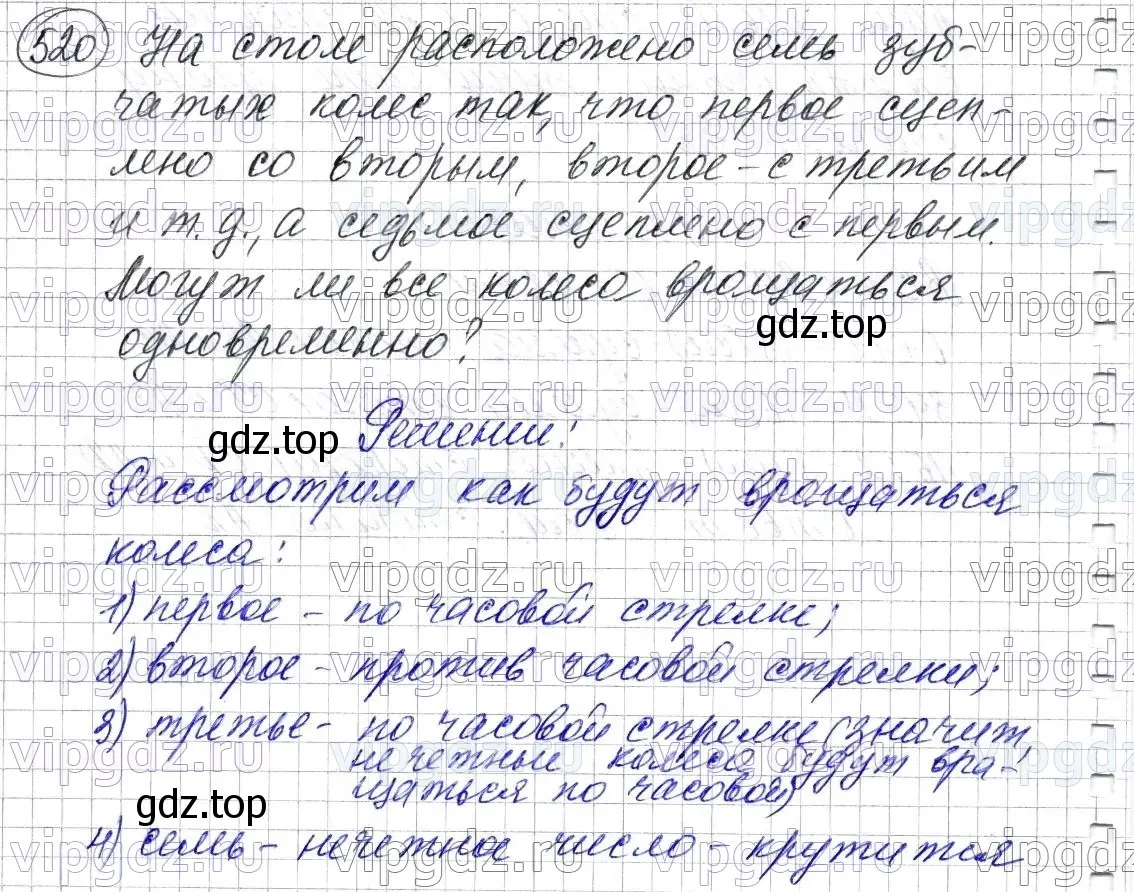 520 На столе расположено семь зуб-
чатых колес так, что первое сцеп-
лено со вторым, второе - с третьим
и т.д., а седьмое сцеплено с первым.
Могут ли все колеса вращаться
одновременно?
gdz.top
Решении:
gdz.top
Рассмотрим как будут вращаться
колеса:
1) первое - по часовой стрелке;
2) второе - против часовой стрелки;
3) третье - по часовой стрелке (значит,
нечетные колеса будут вра-
щаться по часовой)
gdz.top
4) семь - нечетное число - крутится